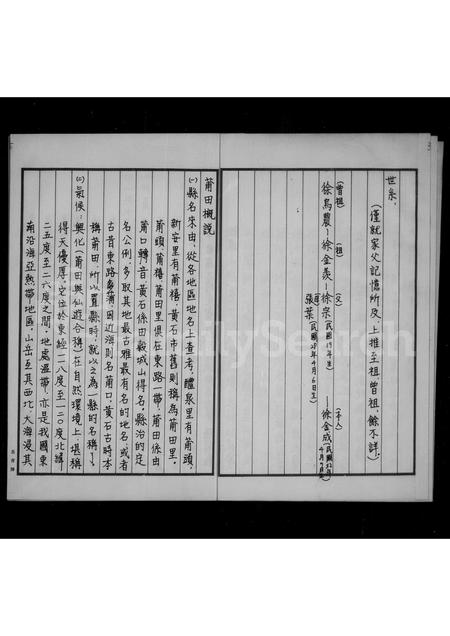 世系：
(僅就家父記憶所及，上推至祖，曾祖，餘不詳。)
(曾祖) (祖) (父) (本人)
徐烏農—徐金炎—徐宗(民國19年生)—徐金成(民國52年4月9日生)
張葉(民國25年4月6日生)
莆田概說
(一)縣名來由：從各地區地名上查考，醴泉里有莆頭，
新安里有莆禧，黃石市舊則稱為莆田里，
莆頭莆禧莆田里俱在東路一帶，莆田係由
莆口轉音，黃石係由穀城山得名，縣治的定
名公例，多取其地最古雅最有名的地名，或者
古昔東路多蒲，因近海則名莆口，黃石古時本
稱莆田，所以置縣時，就以之為一縣的名稱了。
(二)氣候：興化(莆田與仙遊合稱)在自然環境上，堪稱
得天優厚，它位於東經一一八度至一二○度，北緯
二五度至二六度之間，地處溫帶，亦是我國東
南沿海亞熱帶地區，山岳亙其西北，大海濱其